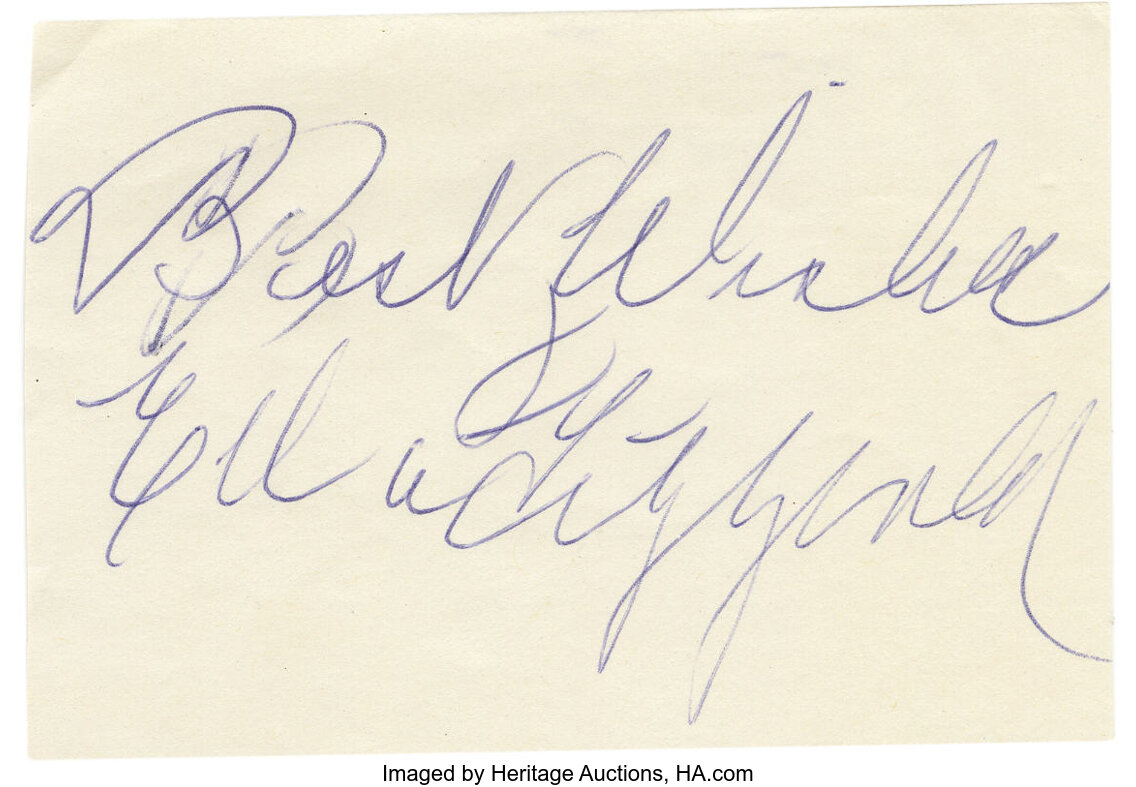 Best Wishes
Ella Fitzgerald
Imaged by Heritage Auctions, HA.com